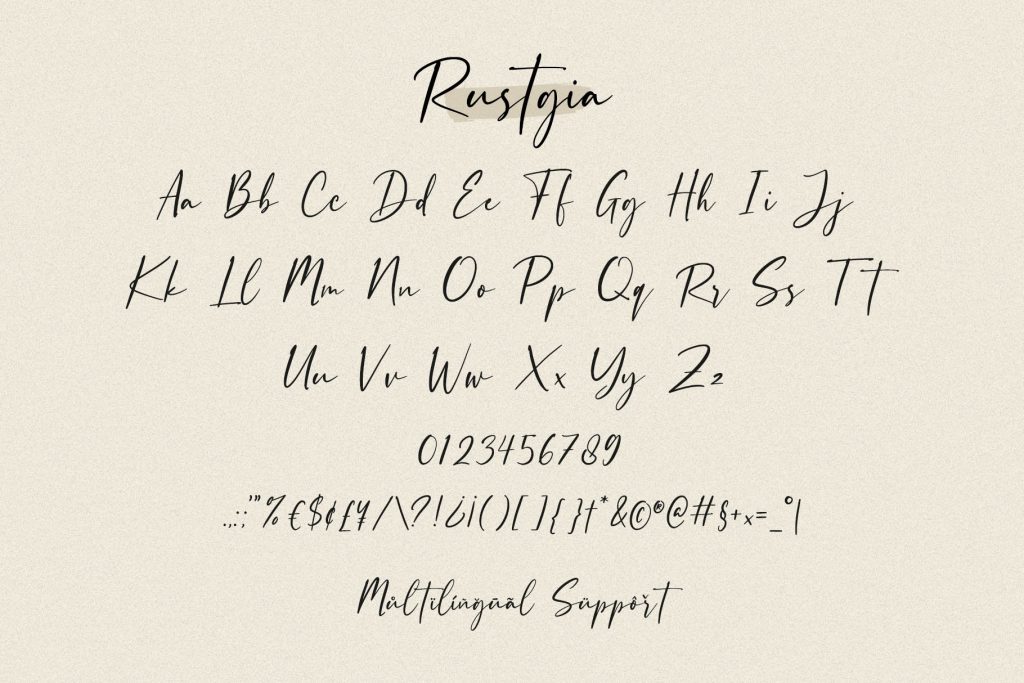 Rustgia
Aa Bb Cc Dd Ee Ff Gg Hh Ii Jj
Kk Ll Mm Nn Oo Pp Qq Rr Ss Tt
Uu Vv Ww Xx Yy Zz
0123456789
.,:;'"%€$¢£¥/\?!¿¡()[]{}†*&©®@#§+×=_°|
Můltïlíñğūãl Süppôřt